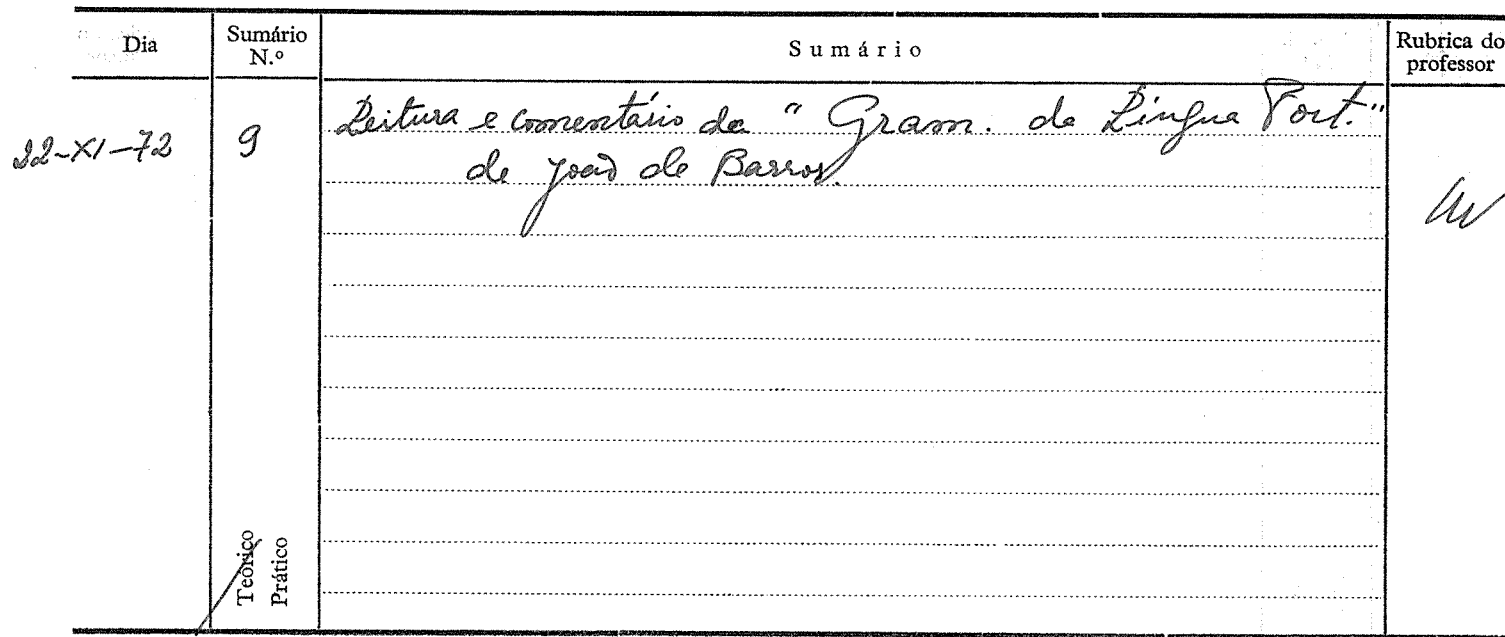 Dia
Sumário
N.º
Sumário
Rubrica do
professor
22-XI-72
9
Leitura e comentário da "Gram. da Língua Port."
de João de Barros.
Teórico
Prático